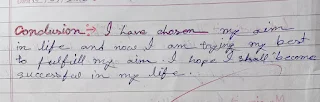 Conclusion:→ I have chosen my aim
in life and now I am trying my best
to fulfill my aim. I hope I shall become
successful in my life.